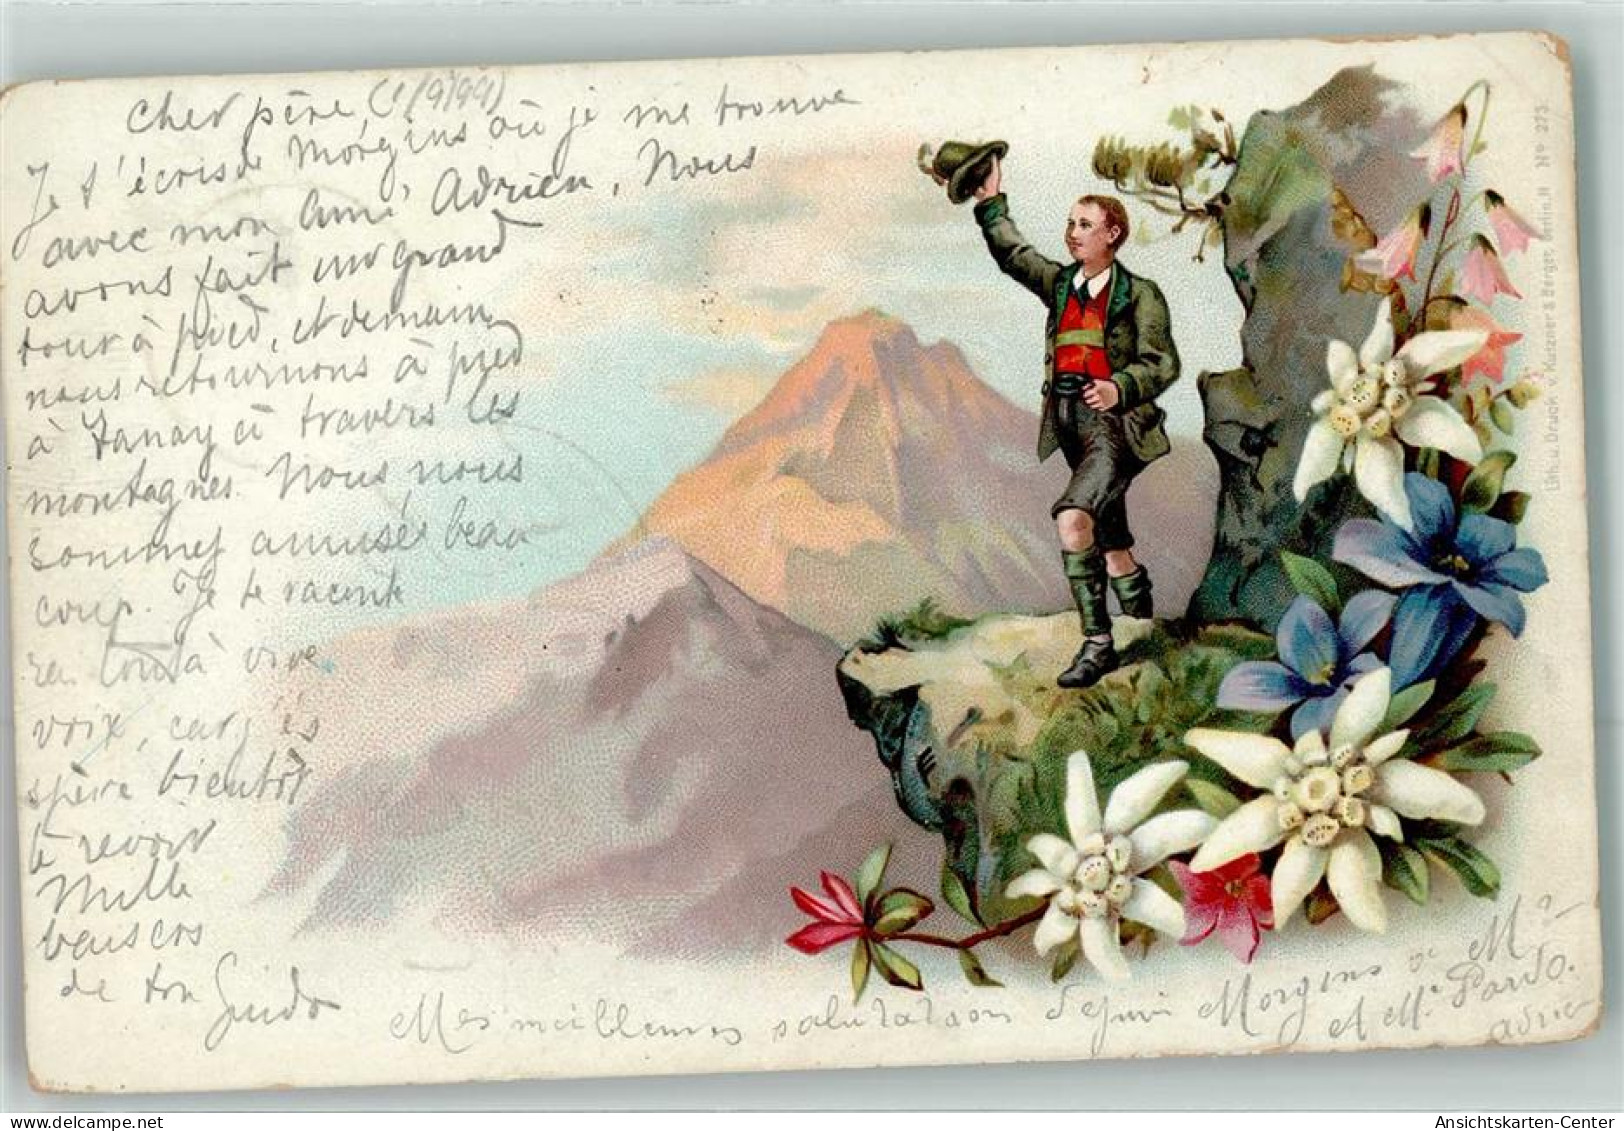 cher père, (1/9/99)
Je t'écris de Morgins où je me trouve
avec mon ami Adrien, Nous
avons fait un grand
tour à pied, et demain
nous retournons à pied
à Tanay à travers les
montagnes. Nous nous
sommes amusés beau
coup. Je te raconte
rai tout à vive
voix, car j'es
spère bientôt
te revoir
Mille
baisers
de ton Guido
Mes meilleures salutations depuis Morgins à Mr
et Me Pardo.
Adrien
Lith. u. Druck v. Kutzner & Berger, Berlin. N° 273.
Ansichtskarten-Center